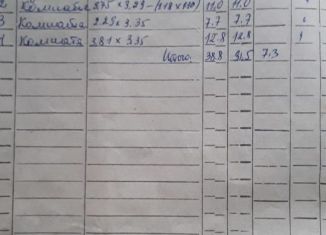 2 Комната 3.29-(1.18x1.10) 11.0 11.0
3 Комната 2.29x3.35 7.7 7.7
4 Комната 3.81x3.35 12.8 12.8
Итого: 38.8 31.5 7.3